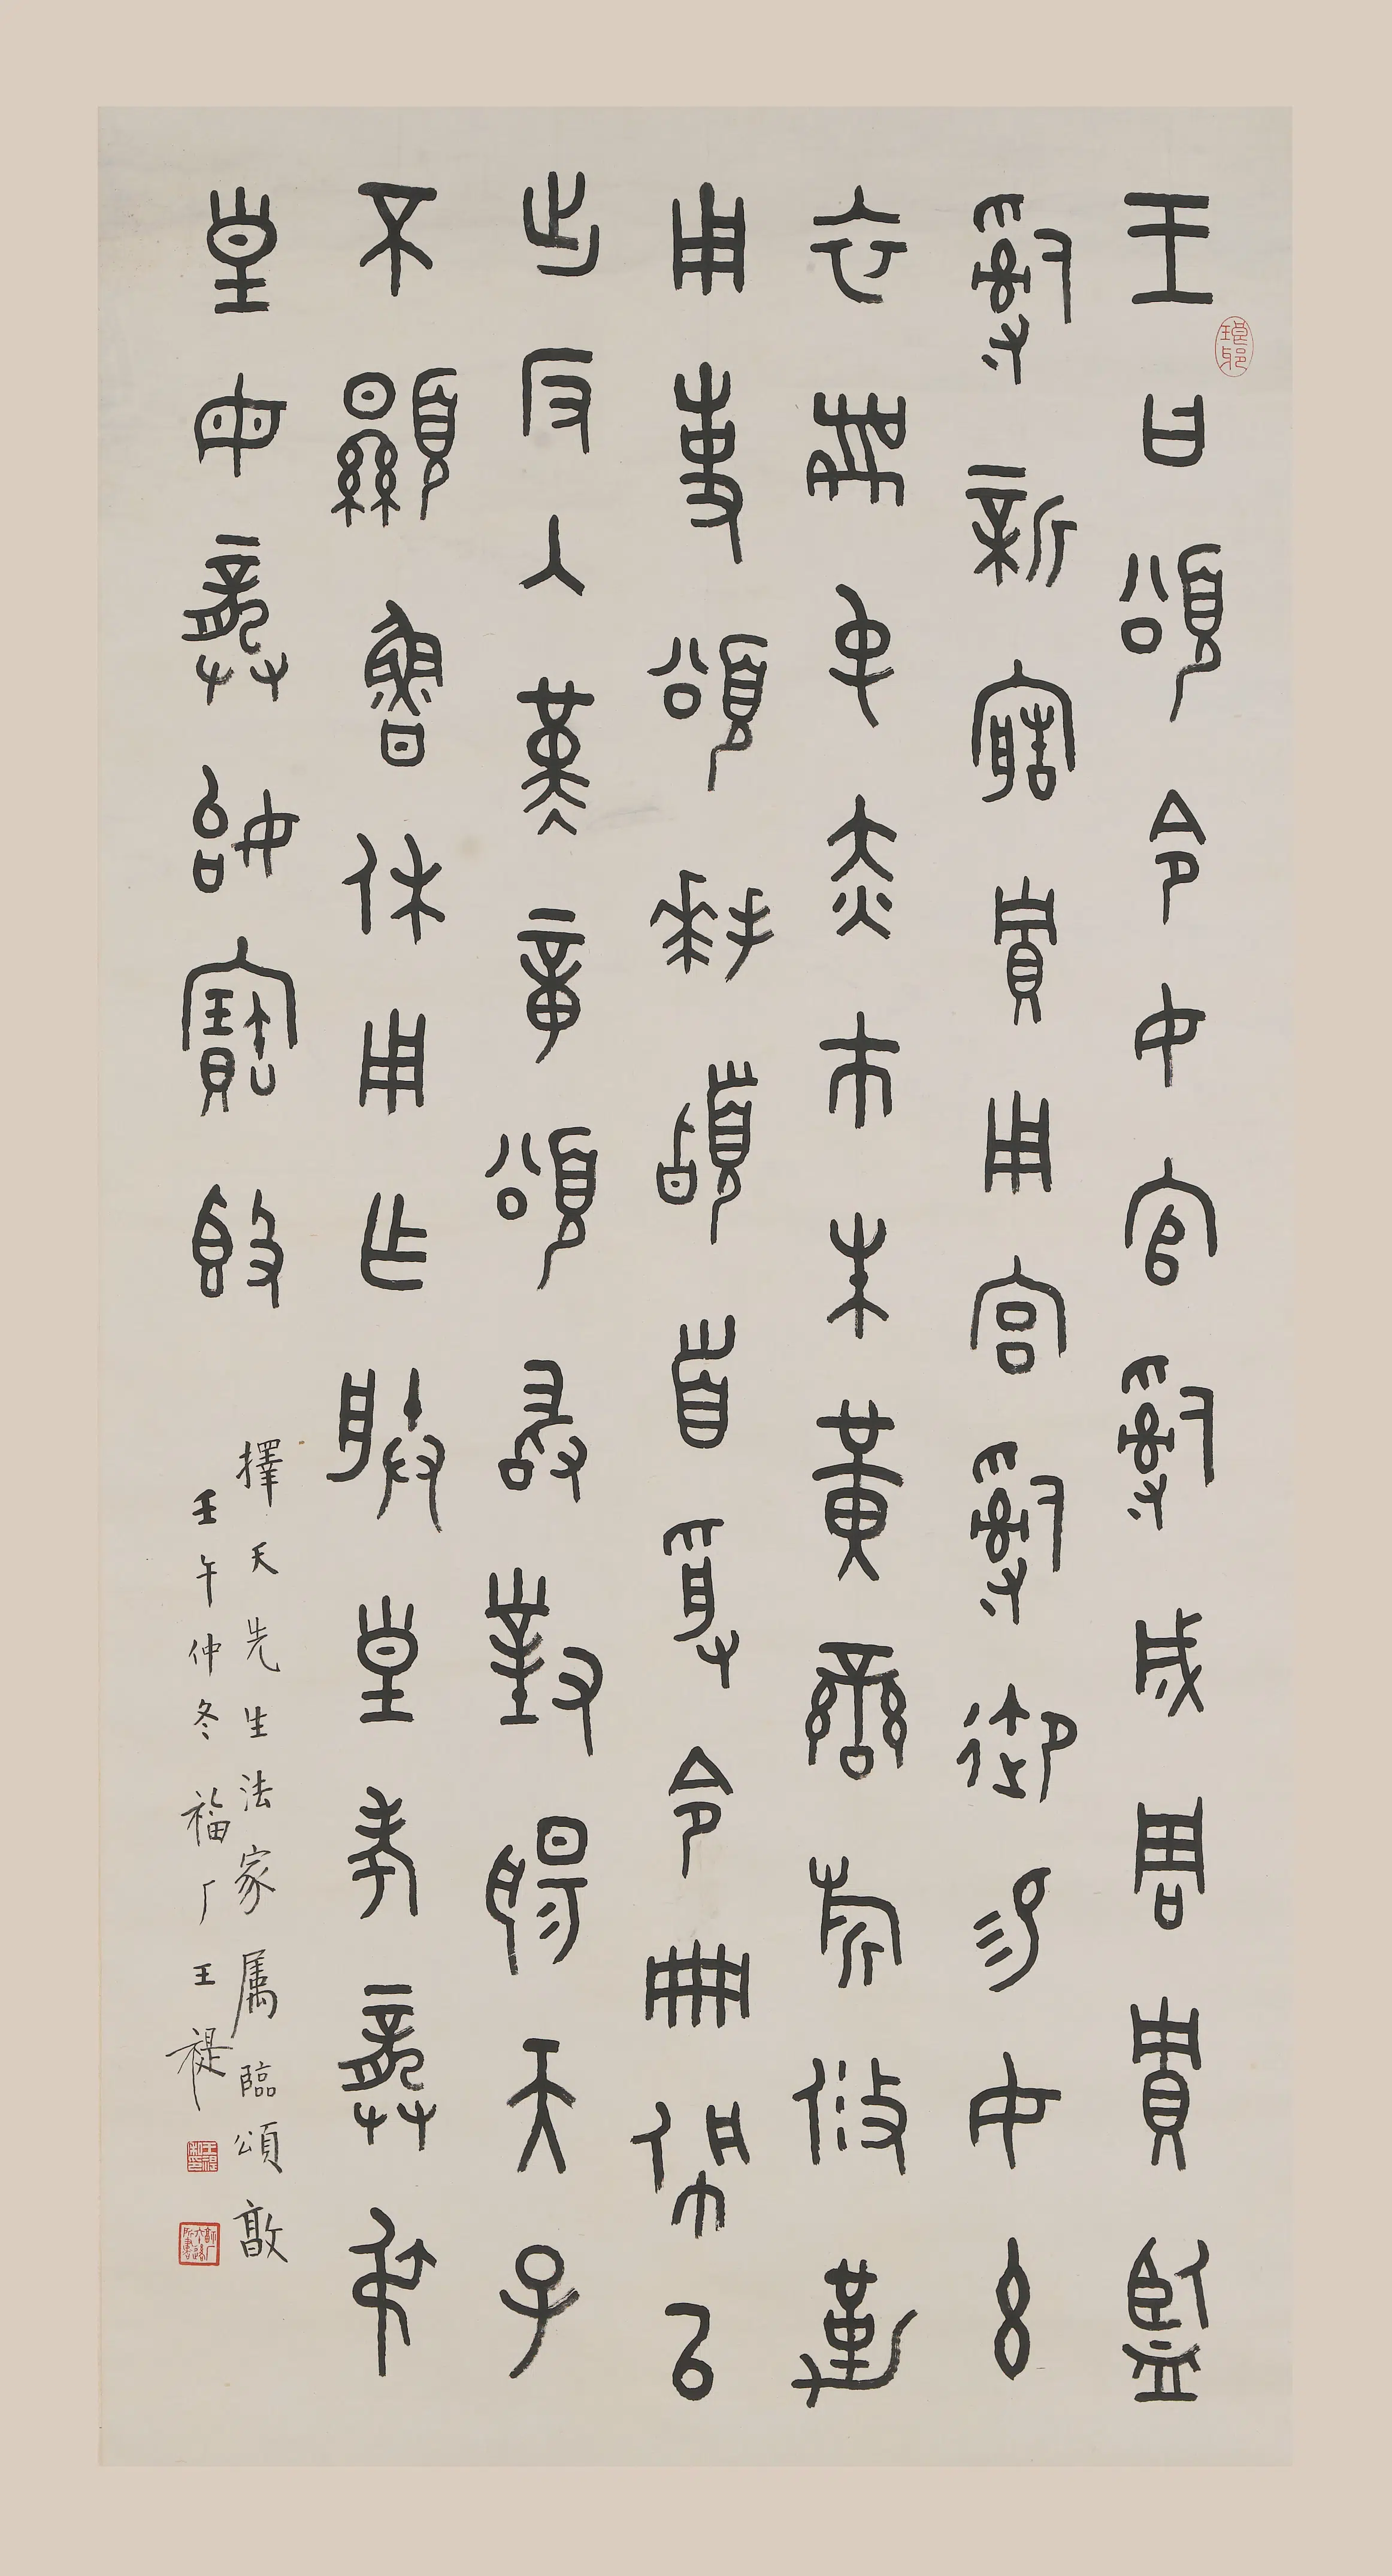 王曰頌令女官𤔲成周貯監
𤔲新造貯用宮𤔲御易女玄
衣黹屯赤巿朱黃䜌旂攸勒
用事頌拜𩒨首受令冊佩以
出反入堇章頌敢對揚天子
不顯魯休用乍朕皇考龏弔
皇母龏姒寶𣪘
擇天先生法家属臨頌敦
壬午仲冬福厂王禔
琅邪